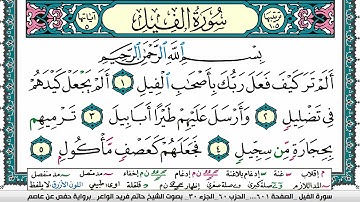 سُورَةُ الْفِيلِ
ترتيبها
١٠٥
آياتها
٥
بِسْمِ اللَّهِ الرَّحْمَٰنِ الرَّحِيمِ
أَلَمْ تَرَ كَيْفَ فَعَلَ رَبُّكَ بِأَصْحَابِ الْفِيلِ ١ أَلَمْ يَجْعَلْ كَيْدَهُمْ
فِي تَضْلِيلٍ ٢ وَأَرْسَلَ عَلَيْهِمْ طَيْرًا أَبَابِيلَ ٣ تَرْمِيهِم
بِحِجَارَةٍ مِّن سِجِّيلٍ ٤ فَجَعَلَهُمْ كَعَصْفٍ مَّأْكُولٍ ٥
سورة الفيل الصفحة ٦٠١ الحزب ٦٠ الجزء ٣٠ بصوت الشيخ حاتم فريد الواعر برواية حفص عن عاصم